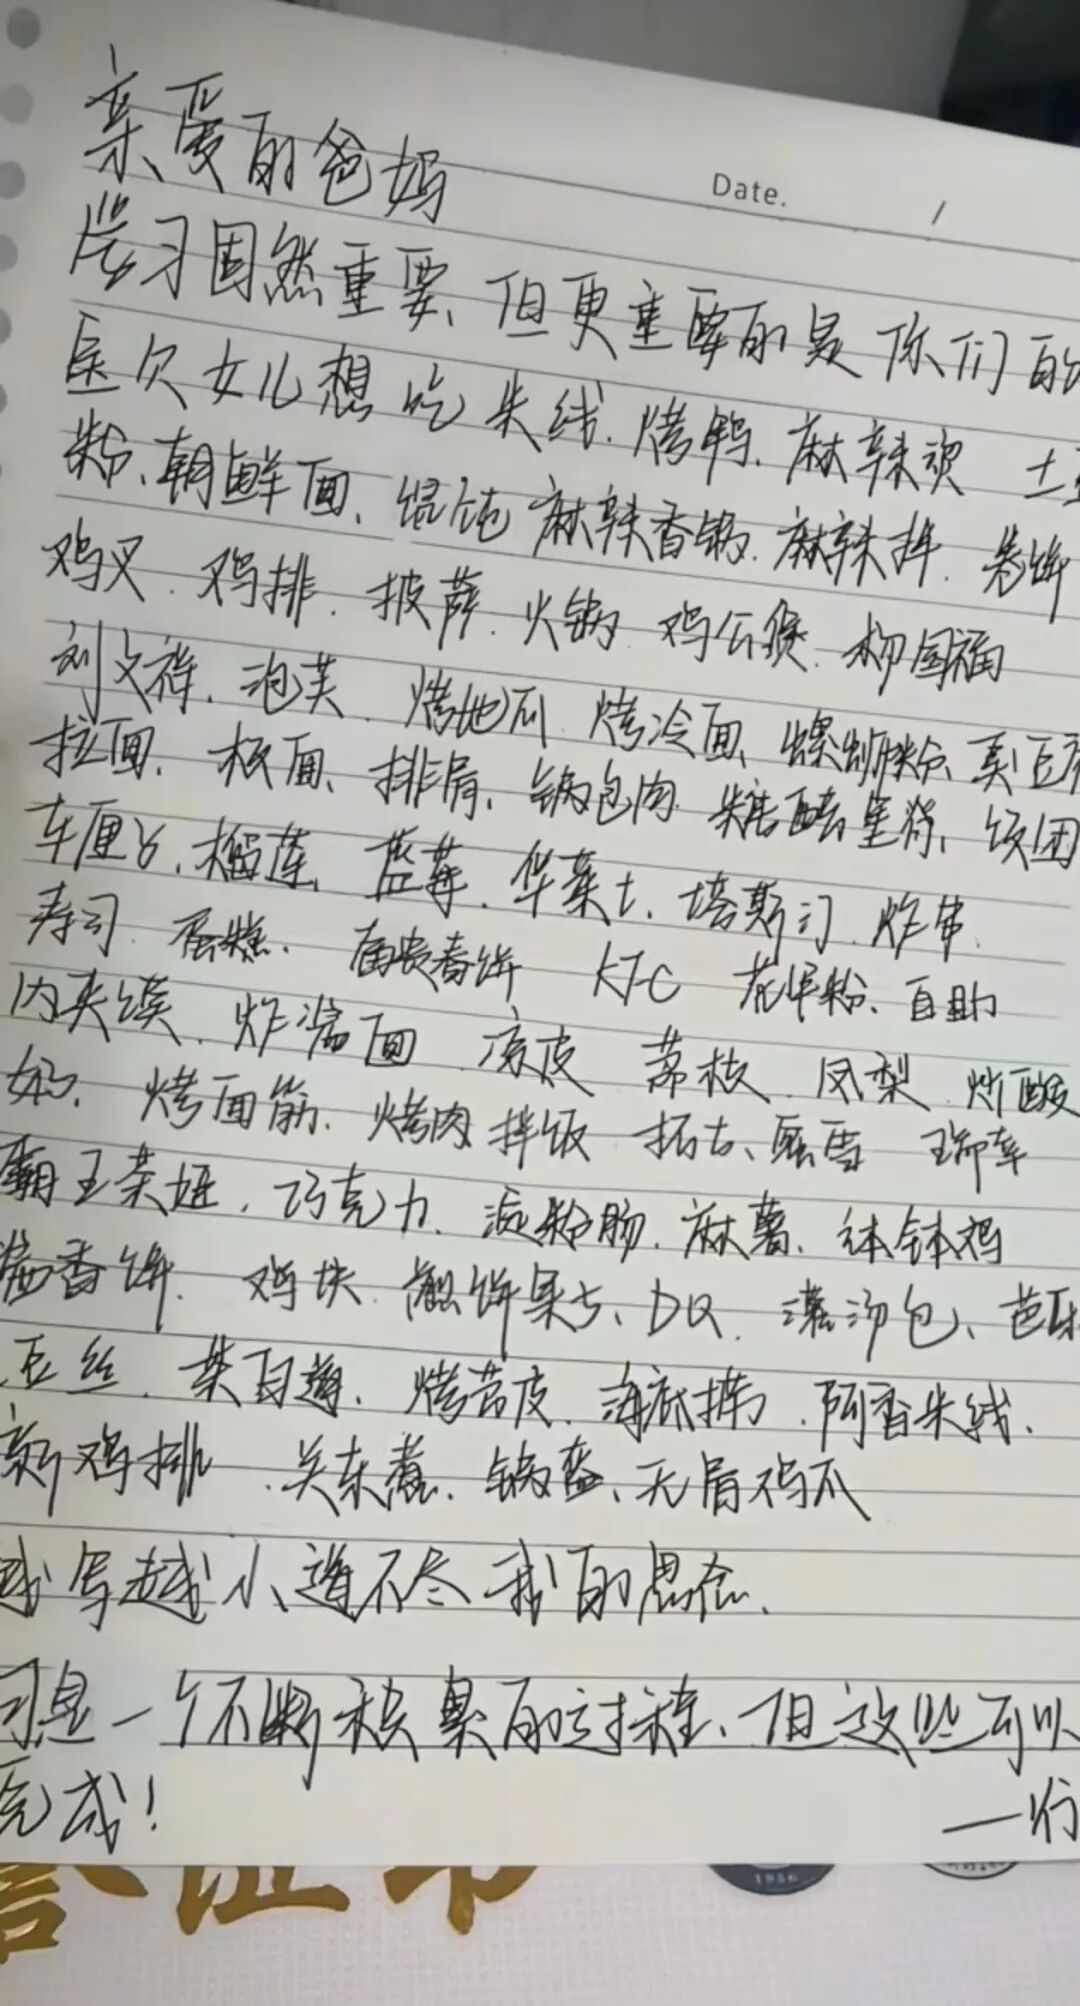 亲爱的爸妈
Date. /
学习固然重要、但更重要的是你们的
女儿想吃米线.烤鸭.麻辣烫 土
粉、朝鲜面、馄饨 麻辣香锅.麻辣拌.卷饼
鸡叉.鸡排.披萨.火锅 鸡公煲.杨国福
刘文祥.泡芙.烤地瓜.烤冷面、螺蛳粉、
拉面、板面、排骨、锅包肉 糖醋里脊、饭团
车厘子、榴莲、蓝莓.华莱士、塔斯汀.炸串.
寿司.蛋糕. 春饼 KFC 花甲粉、自助
肉夹馍.炸酱面 凉皮 荔枝.凤梨 炒酸
奶、烤面筋.烤肉拌饭 瑞幸
霸王茶姬.巧克力.淀粉肠.麻薯、钵钵鸡
酱香饼.鸡块.煎饼果子、DQ.灌汤包、
豆丝.茶百道、烤苕皮.海底捞.阿香米线.
鸡排.关东煮.锅盔、无骨鸡爪
越写越小、道不尽我的思念.
习是一个不断积累的过程、但这些可以
完成！
—行
证书